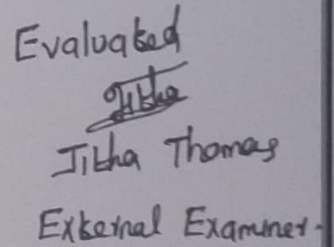 Evaluated
Jitha
Jitha Thomas
External Examiner.